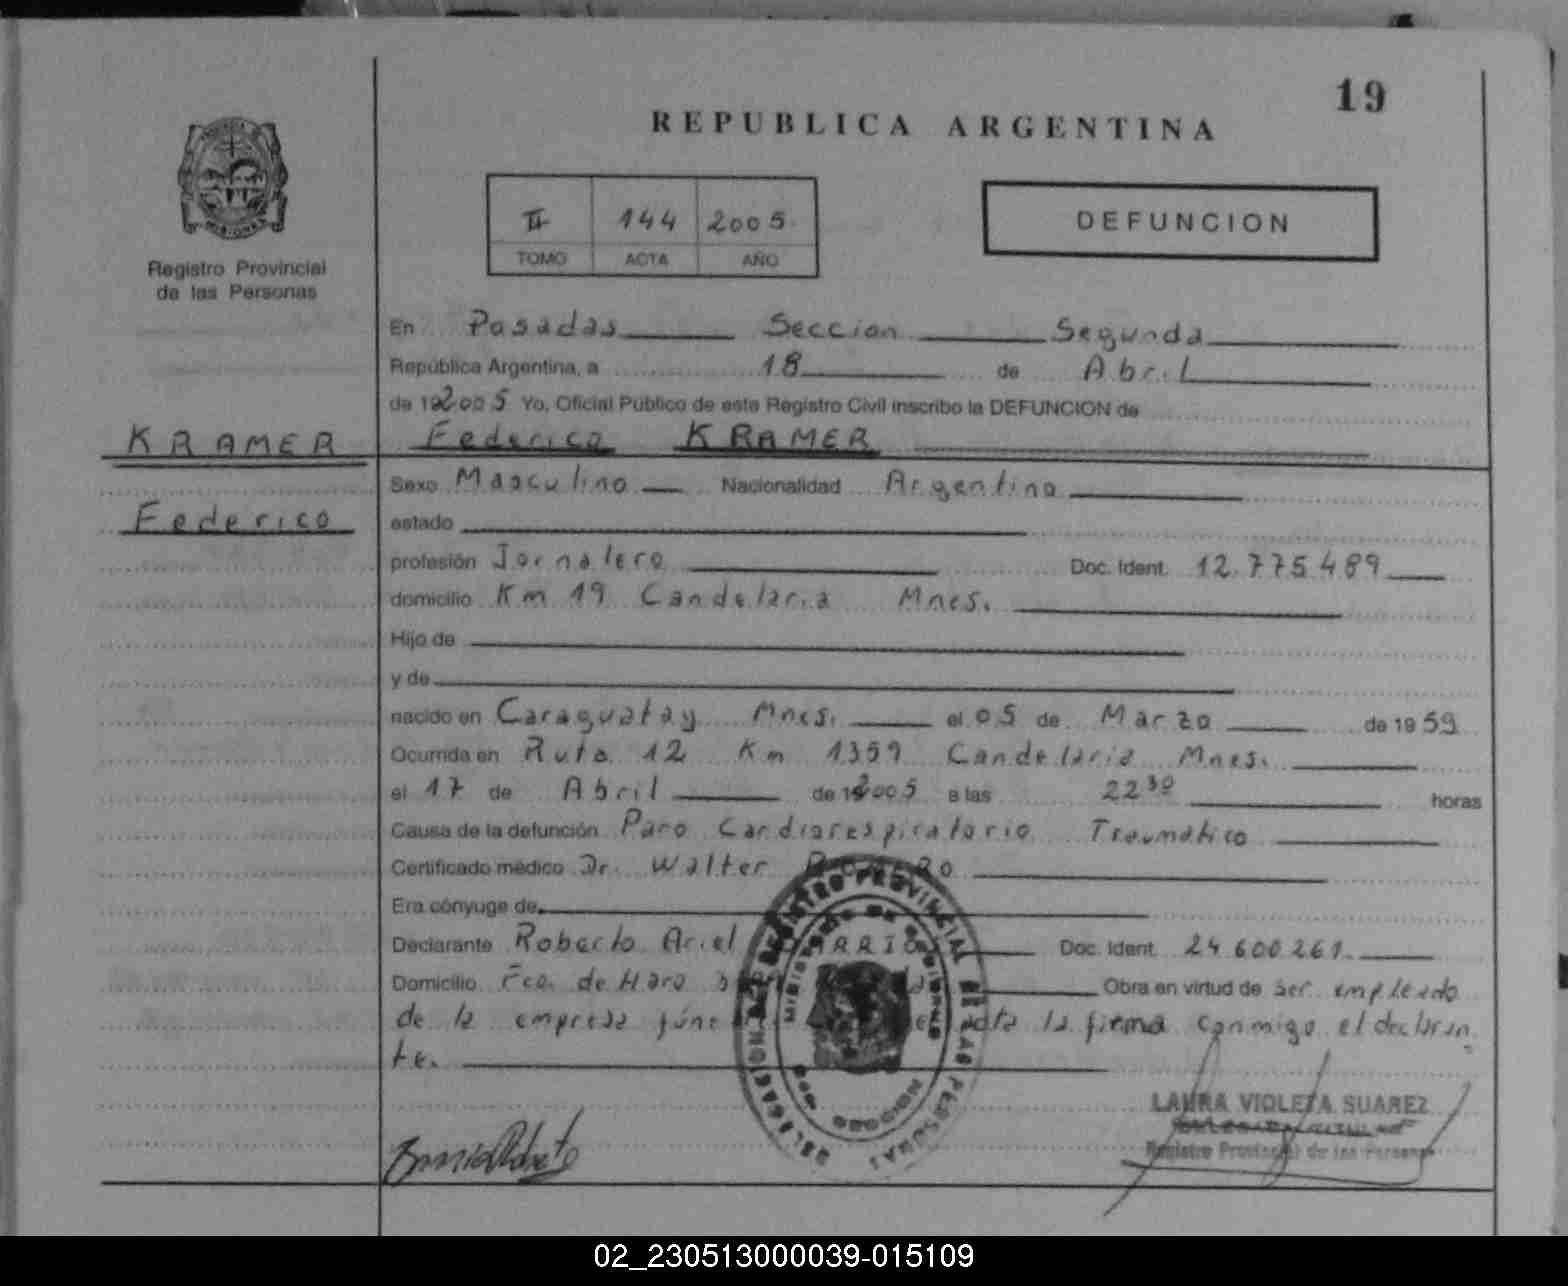 19
REPUBLICA ARGENTINA
II 144 2005.
TOMO ACTA AÑO
DEFUNCION
Registro Provincial
de las Personas
En Posadas Seccion Segunda
República Argentina, a 18 de Abril
de 2005 Yo, Oficial Público de este Registro Civil inscribo la DEFUNCION de
KRAMER Federico KRAMER
Sexo Masculino Nacionalidad Argentina
Federico
estado
profesión Jornalero Doc. Ident. 12.775.489
domicilio Km 19 Candelaria Mnes.
Hijo de
y de
nacido en Caraguatay Mnes. el 05 de Marzo de 1959
Ocurrida en Ruta 12 Km 1359 Candelaria Mnes.
el 17 de Abril de 2005 a las 22 30 horas
Causa de la defunción Paro Cardiorespiratorio Traumático
Certificado médico Dr. Walter
Era cónyuge de
Declarante Roberto Ariel Doc. Ident. 24.600.261.
Domicilio Fco. de Haro Obra en virtud de ser empleado
de la empresa la firma conmigo el declaran
te.
DELEGACION REGISTRO PROVINCIAL DE LAS PERSONAS
MINISTERIO DE GOBIERNO
LAURA VIOLETA SUAREZ
Registro Provincial de las Personas
02_230513000039-015109